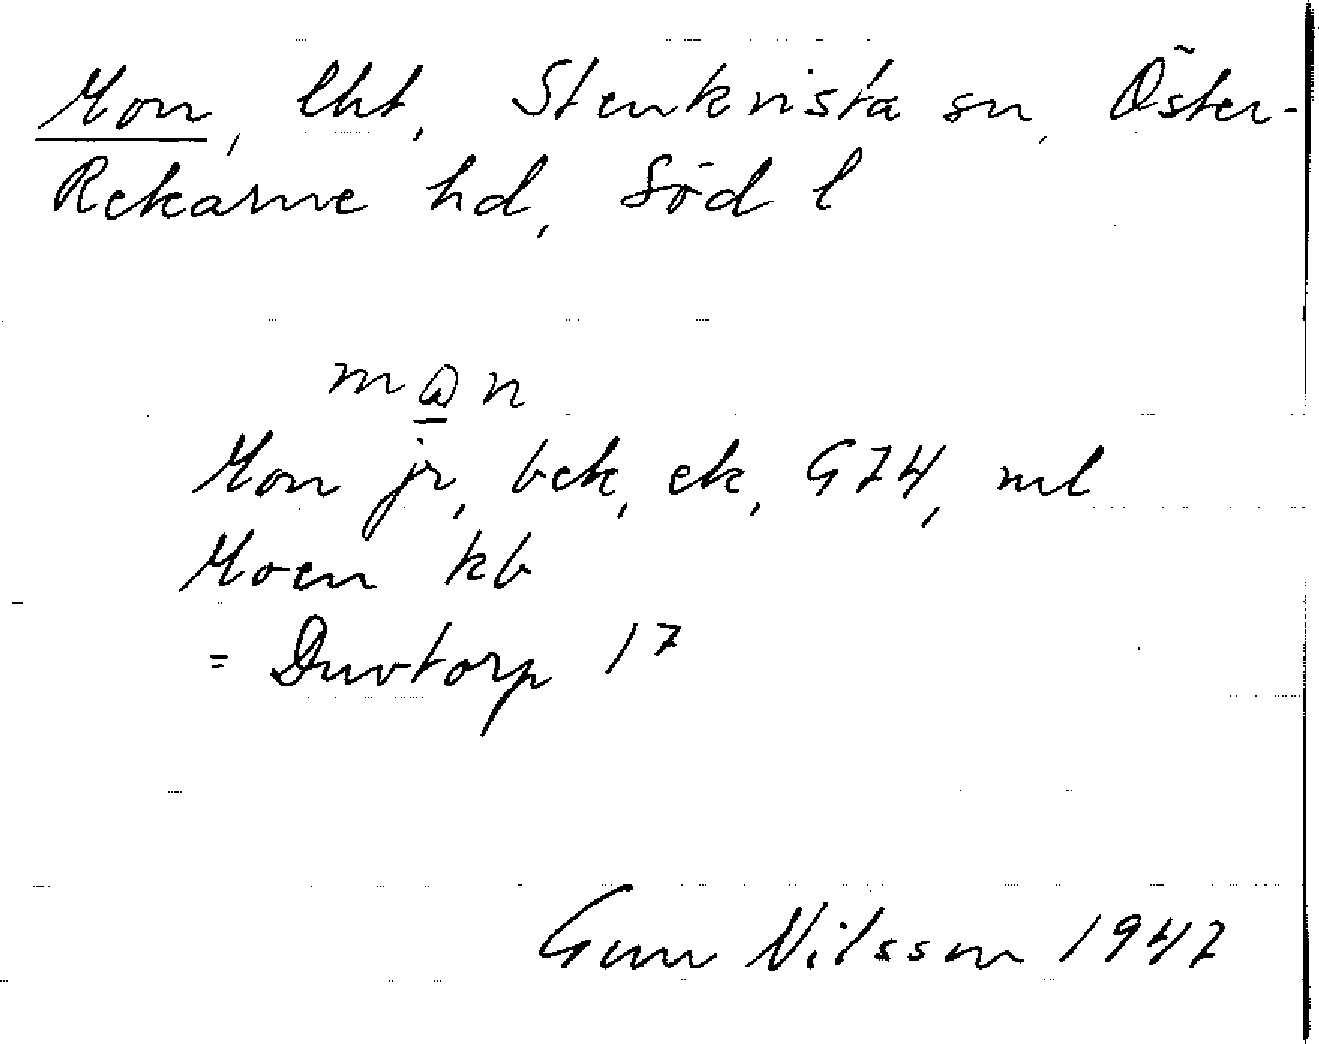 Mon, lht, Stenkvista sn, Öster-
Rekarne hd, Söd l
Mon jr, bek, ek, G74, ml
Moen kb
= Duvtorp 17
Gun Nilsson 1947